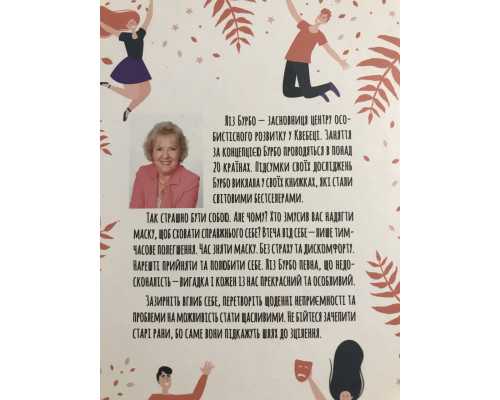 Ліз Бурбо — засновниця центру осо-
бистісного розвитку у Квебеці. Заняття
за концепцією Бурбо проводяться в понад
20 країнах. Підсумки своїх досліджень
Бурбо виклала у своїх книжках, які стали
світовими бестселерами.
Так страшно бути собою. Але чому? Хто змусив вас надягти
маску, щоб сховати справжнього себе? Втеча від себе — лише тим-
часове полегшення. Час зняти маску. Без страху та дискомфорту.
Нарешті прийняти та полюбити себе. Ліз Бурбо певна, що недо-
сконалість — вигадка і кожен із нас прекрасний та особливий.
Зазирніть вглиб себе, перетворіть щоденні неприємності та
проблеми на можливість стати щасливими. Не бійтеся зачепити
старі рани, бо саме вони підкажуть шлях до зцілення.